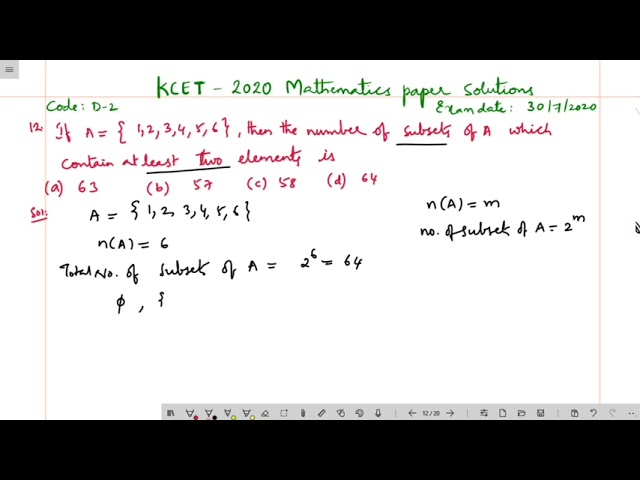 KCET - 2020 Mathematics paper solutions
Code: D-2
Exam date: 30/7/2020
12. If A = { 1,2,3,4,5,6}, then the number of subsets of A which
contain at least two elements is
(a) 63 (b) 57 (c) 58 (d) 64
Sol:
A = { 1,2, 3,4,5,6}
n(A) = 6
Total No. of subsets of A = 2^6 = 64
ϕ , {
n(A) = m
no. of subset of A = 2^m
12 / 20